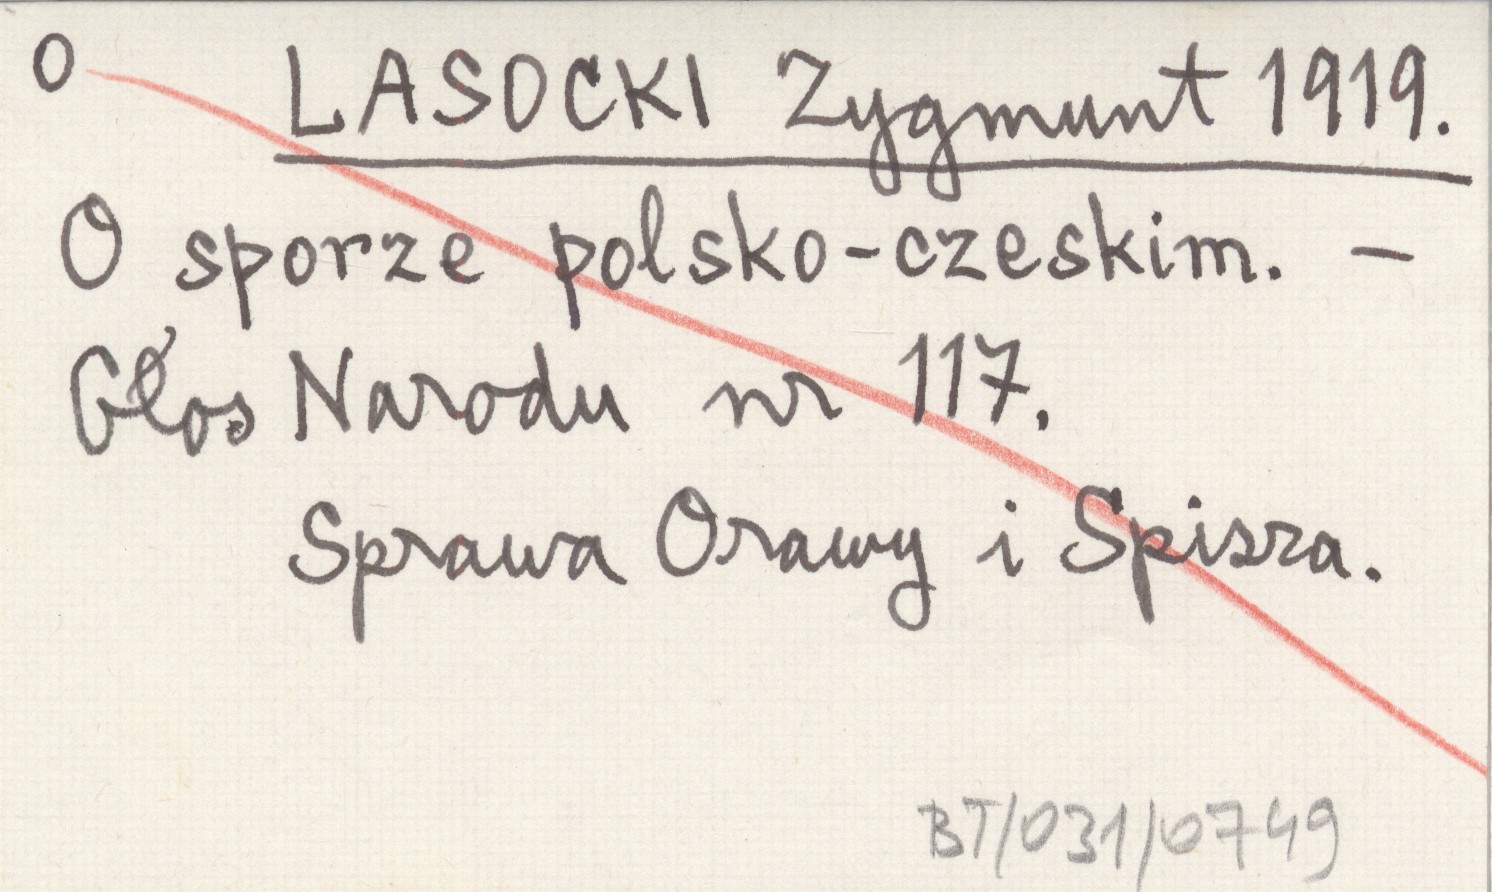 O LASOCKI Zygmunt 1919.
O sporze polsko-czeskim. –
Głos Narodu nr 117.
Sprawa Orawy i Spisza.
BT/031/0749